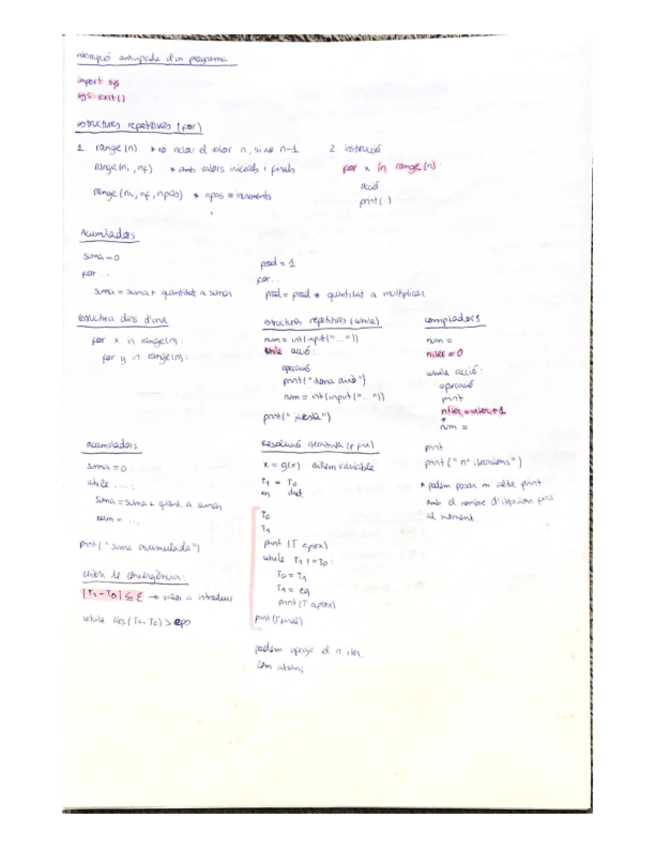 interrupció anticipada d'un programa
import sys
sys.exit()
estructures repetitives (for)
1. range(n) * no inclou el valor n, si no n-1
range(ni, nf) * amb valors inicials i finals
range(ni, nf, npas) * npas = increments
2. instrucció
for x in range(n):
acció
print( )
Acumuladors
suma = 0
for ...
suma = suma + quantitat a sumar
prod = 1
for...
prod = prod * quantitat a multiplicar
estructura dins d'una
for x in range(n):
for y in range(n):
estructures repetitives (while)
num = int(input("..."))
while acció:
operació
print("dona això")
num = int(input("..."))
print(" ")
comptadors
num =
niter = 0
while acció:
operació
print
niter = niter + 1
num =
print
print("nº iteracions")
* podem posar en cada print
amb el nombre d'iteracions fins
al moment.
acumuladors
suma = 0
while ....:
suma = suma + quant. a sumar
num = ...
print("suma acumulada")
criteri de convergència:
|T1 - T0| ≤ ε → valor a introduir
while abs(T1 - T0) > eps
Resolució iterativa (p. fix)
x = g(x) aïllem variable
T1 = T0
T0
T1
print (T aprox)
while T1 != T0:
T0 = T1
T1 = eq
print(T aprox)
print(T final)
podem afegir el n. iter.
com abans;